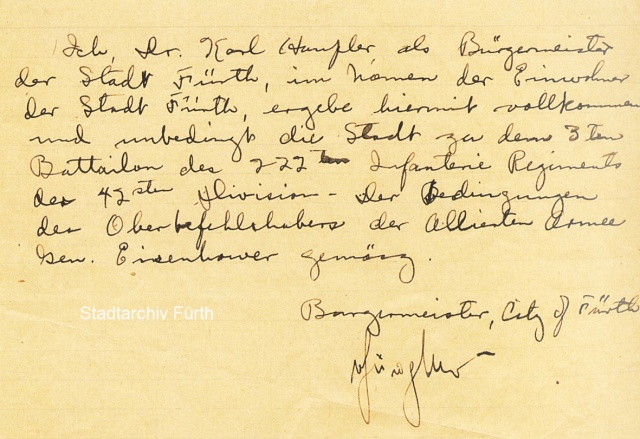 Ich, Dr. Karl Hanfler als Bürgermeister
der Stadt Fürth, im Namen der Einwohner
der Stadt Fürth, ergebe hiermit vollkommen
und unbedingt die Stadt zu dem 3ten
Battailon des 222ten Infanterie Regiments
der 42sten Division - der Bedingungen
des Oberbefehlshabers der Alliesten Armee
Gen. Eisenhower gemäsz.
Stadtarchiv Fürth
Burgermeister, City of Fürth